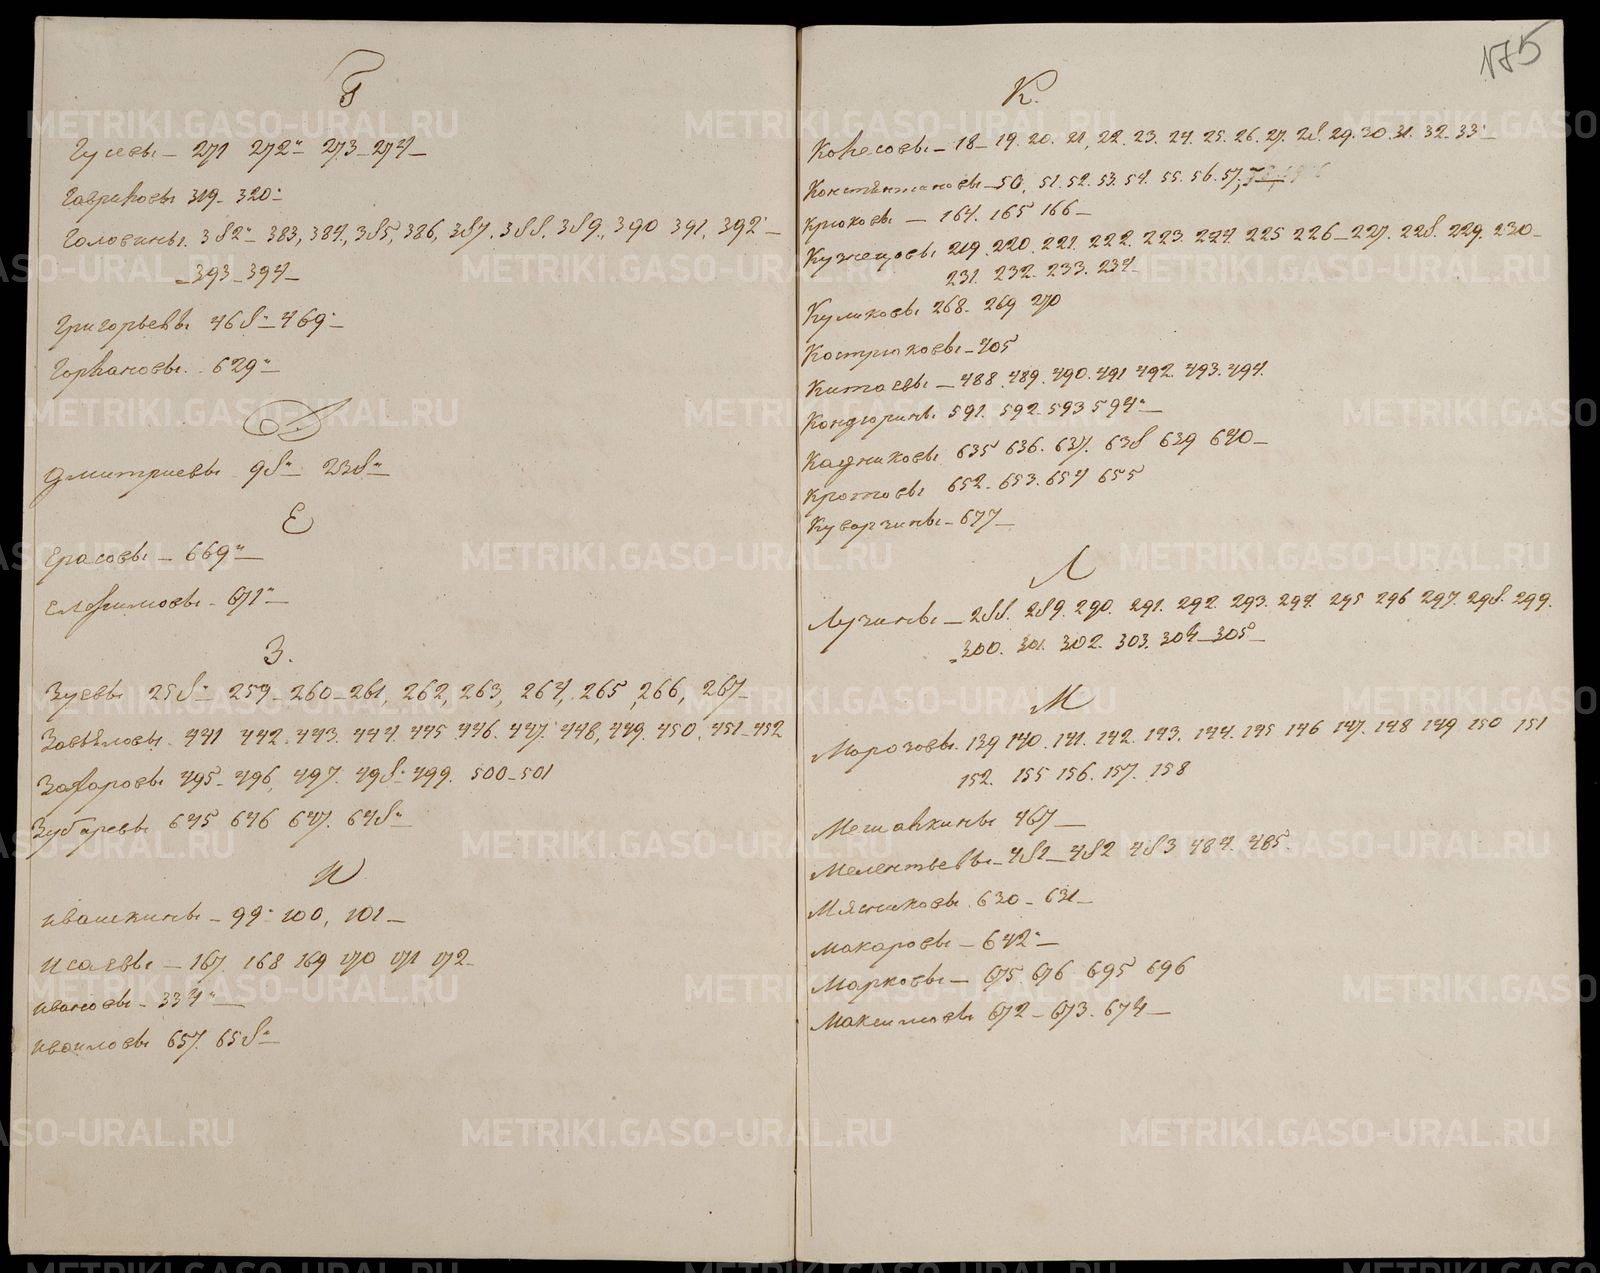 Г
Гусевы – 271 272 273 – 274 –
Гавриковы 319. 320.
Головины. 382 – 383, 384, 385, 386, 387. 388. 389., 390 391. 392 –
– 393 – 394 –
Григорьевы 468 – 469 –
Горкановы. 629 –
Д
Дмитриевы 98 – 238 –
Е
Ерасовы – 669 –
Елфимовы – 671 –
З.
Зуевы 258 – 259 – 260 – 261, 262, 263, 264, 265, 266, 267 –
Завьяловы. 441 442. 443. 444. 445. 446. 447. 448, 449. 450. 451 – 452
Захаровы 495 – 496, 497. 498 – 499. 500 – 501
Зубаревы 645 646 647. 648 –
И
Ивашкины – 99 – 100, 101 –
Исаевы – 167. 168 169 170 171 172 –
Ивановы – 334 –
Ивойловы 657. 658 –
175
К.
Колесовы – 18 – 19. 20. 21, 22. 23. 24. 25. 26. 27. 28. 29. 30. 31. 32. 33 –
Константиновы – 50, 51. 52. 53. 54. 55. 56. 57.
Крюковы – 164. 165 166 –
Кузнецовы 219. 220. 221. 222. 223. 224. 225 226 – 227. 228. 229. 230 –
231. 232. 233. 234 –
Куликовы 268. 269 270
Кострюковы – 405
Китаевы – 488. 489. 490. 491 492. 493. 494.
Кондюрины 591. 592. 593 594 –
Кадниковы 635 636. 637. 638 639 640 –
Кротовы 652. 653. 654 655
Куварзины – 677 –
Л
Лузины – 288. 289. 290. 291. 292. 293. 294. 295 296 297. 298. 299.
– 300. 301. 302. 303. 304 – 305 –
М
Морозовы. 139 140. 141. 142. 143. 144. 145 146 147. 148 149 150 151
152. 155 156. 157. 158
Мешавкины 467 –
Мелентьевы – 481 – 482 483 484. 485.
Мясниковы. 630 – 631 –
Макаровы – 642 –
Марковы – 675. 676 695 696
Максимовы 672 – 673. 674 –
METRIKI.GASO-URAL.RU